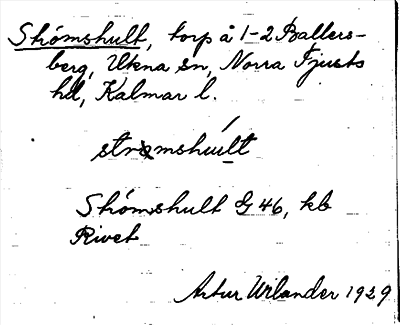 Strömshult, torp å 1-2 Ballers-
berg, Ukna sn, Norra Tjusts
hd, Kalmar l.
strømshu̱lt
Strömshult G 46, kb
Rivet
Artur Wilander 1929